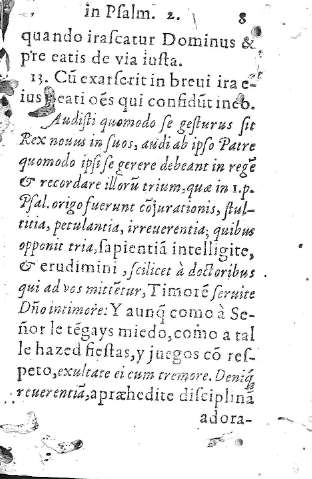 in Psalm. 2. 8
quando irascatur Dominus &
pre eatis de via iusta.
13. Cũ exarserit in breui ira e-
ius beati oẽs qui confidũt in eo.
Audisti quomodo se gesturus sit
Rex nouus in suos, audi ab ipso Patre
quomodo ipsi se gerere debeant in regẽ
& recordare illorũ trium, quæ in 1. p.
Psal. origo fuerunt cõjurationis, stul-
titia, petulantia, irreuerentia; quibus
opponit tria, sapientiã intelligite,
& erudimini, scilicet à doctoribus
qui ad vos mittẽtur, Timorẽ seruite
Dño in timore: Y aunq̃ como à Se-
ñor le tẽgays miedo, como a tal
le hazed fiestas, y juegos cõ res-
peto, exultate ei cum tremore. Deniq̃
reuerentiã, apræhẽdite disciplinã
adora-